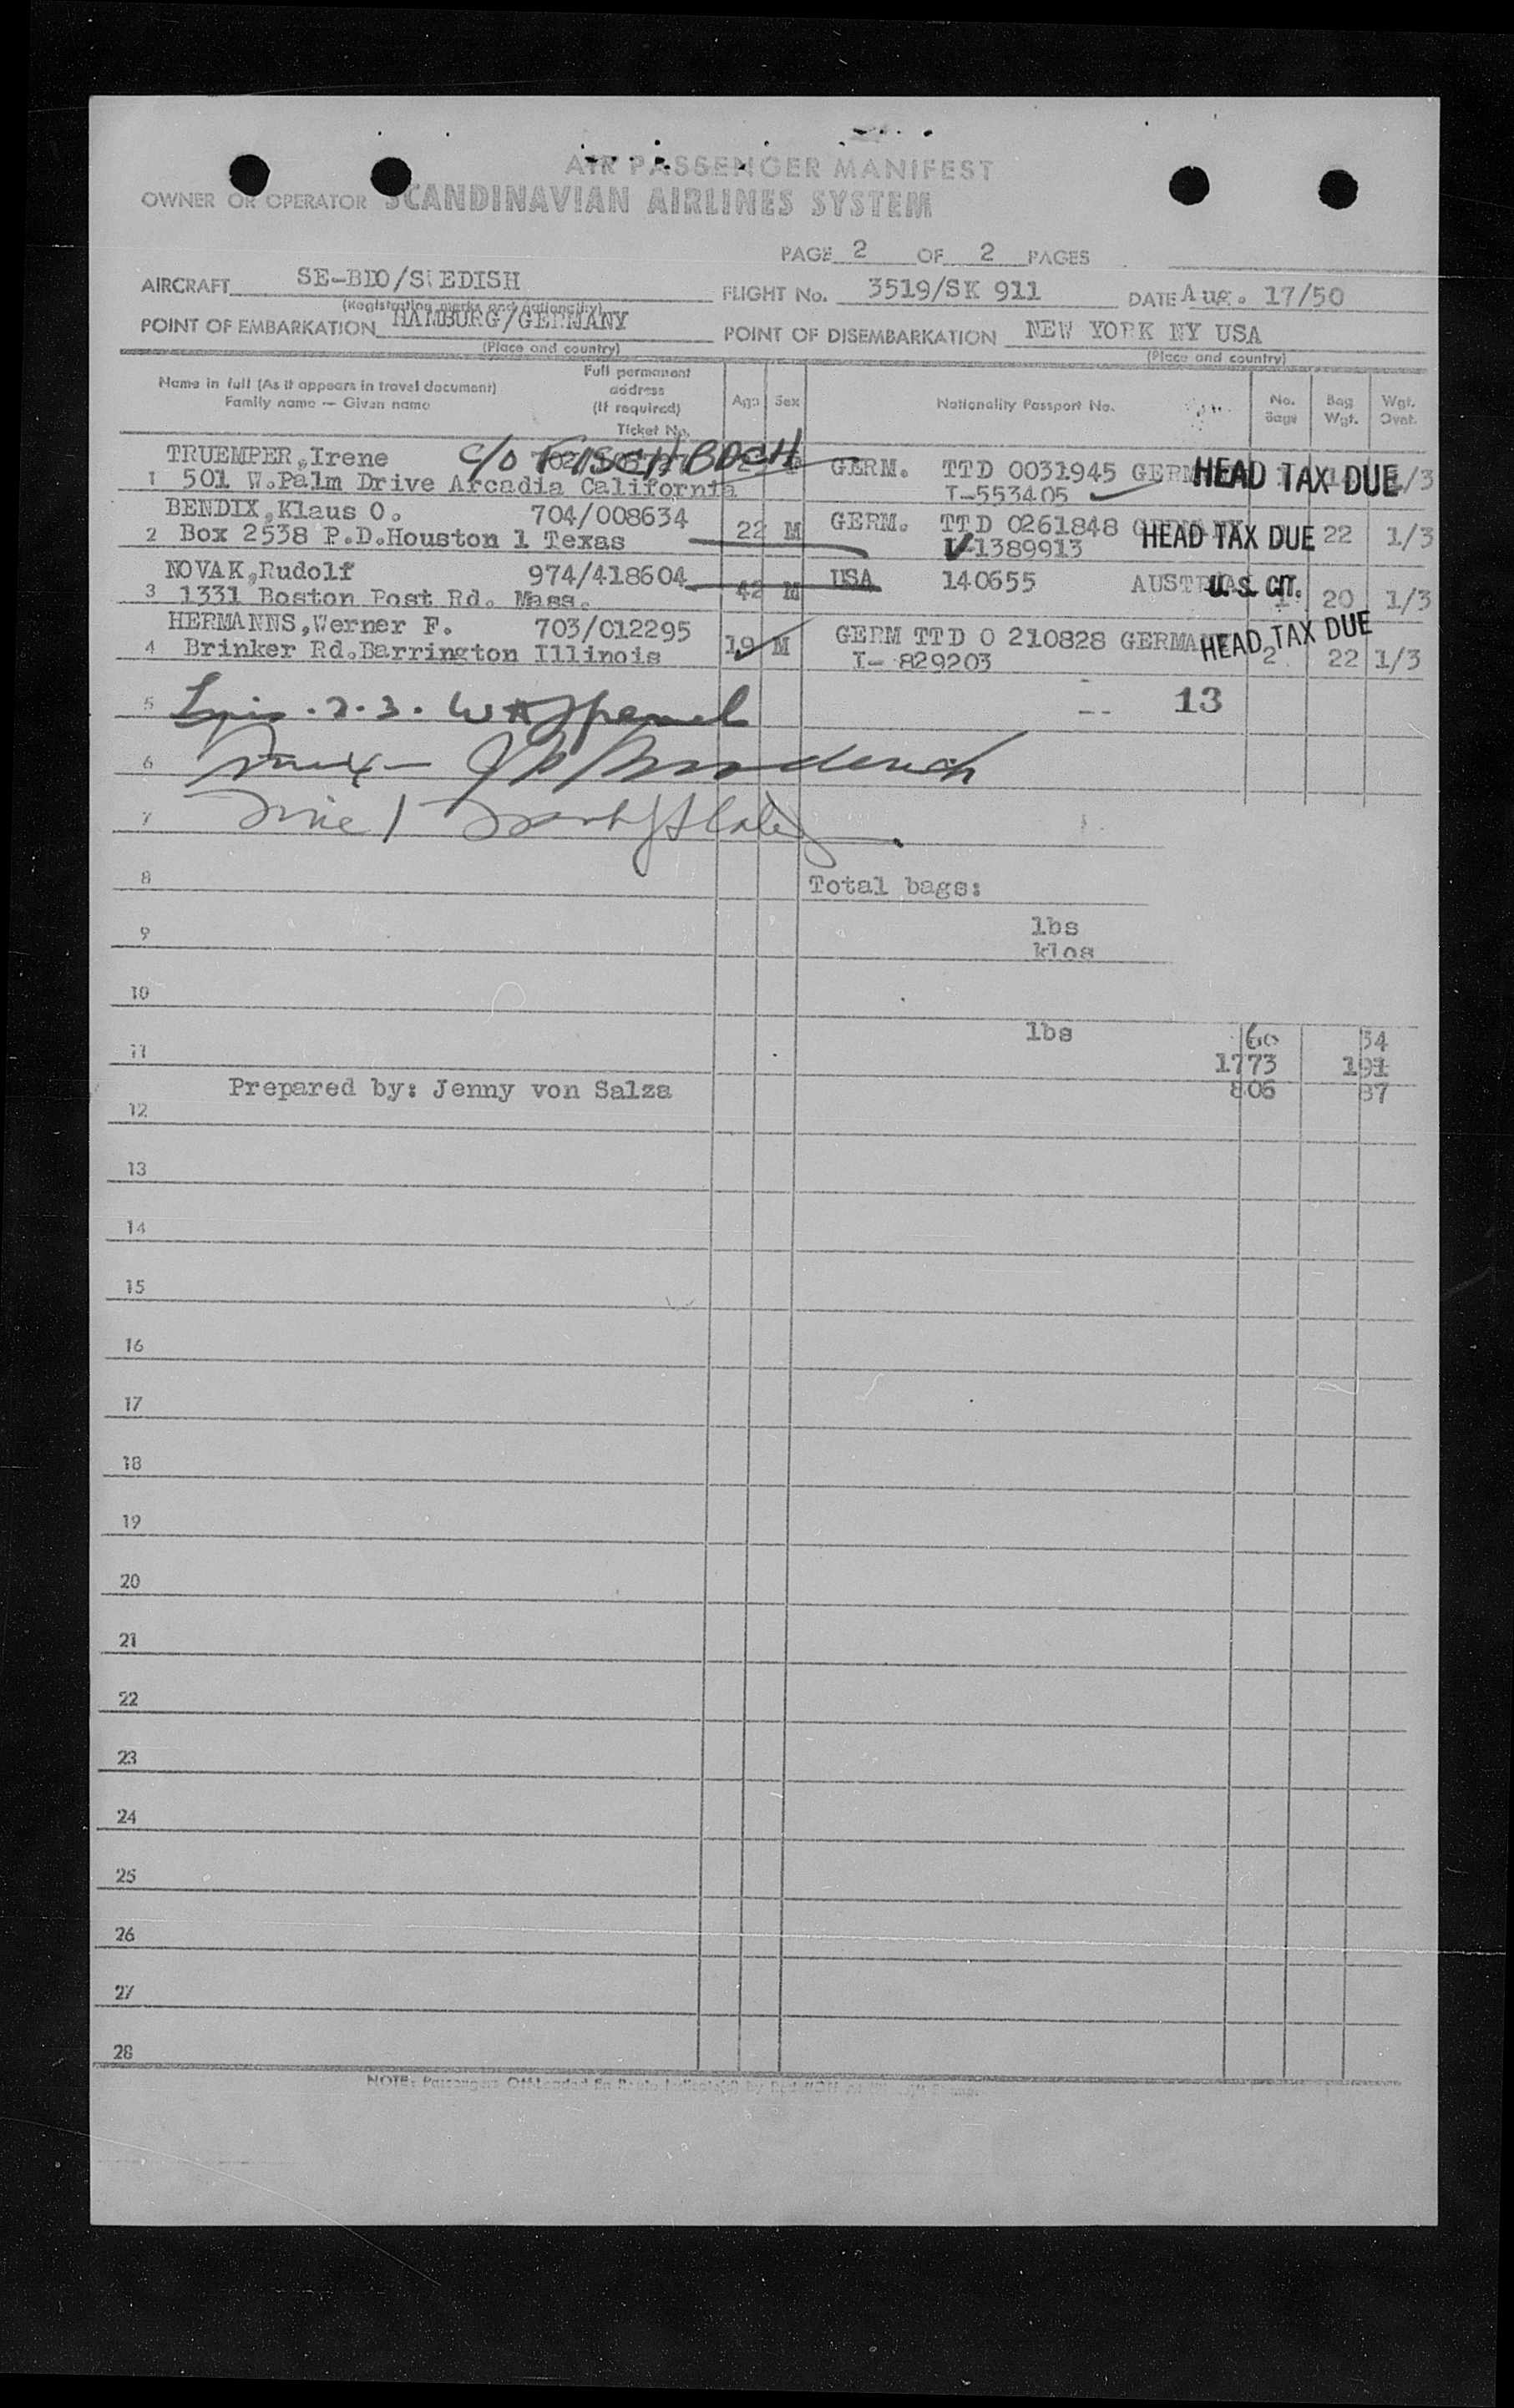 AIR PASSENGER MANIFEST
OWNER OR OPERATOR SCANDINAVIAN AIRLINES SYSTEM
PAGE 2 OF 2 PAGES
AIRCRAFT SE-BDO/SWEDISH FLIGHT No. 3519/SK 911 DATE Aug. 17/50
(Registration marks and nationality)
POINT OF EMBARKATION HAMBURG/GERMANY POINT OF DISEMBARKATION NEW YORK NY USA
(Place and country) (Place and country)
Name in full (As it appears in travel document) Family name — Given name Full permanent address (If required) Ticket No. Age Sex Nationality Passport No. No. Bags Bag Wgt. Wgt. Ovnt.
TRUEMPER, Irene c/o FAISCHBOCH GERM. TTD 0031945 HEAD TAX DUE 1/3
1 501 W.Palm Drive Arcadia California I-553405
BENDIX, Klaus O. 704/008634 22 M GERM. TTD 0261848 GERMANY HEAD TAX DUE 22 1/3
2 Box 2538 P.D.Houston 1 Texas I-1389913
NOVAK, Rudolf 974/418604 42 M USA 140655 AUSTRIA U.S. CIT. 1 20 1/3
3 1331 Boston Post Rd. Mass.
HERMANNS, Werner F. 703/012295 19 M GERM TTD 0 210828 GERMANY HEAD TAX DUE 2 22 1/3
4 Brinker Rd.Barrington Illinois I- 829203
5 13
6
7
8 Total bags:
9 lbs
klos
10
lbs 60 54
11 1773 191
Prepared by: Jenny von Salza 806 87
12
13
14
15
16
17
18
19
20
21
22
23
24
25
26
27
28
NOTE: Passengers Off-loaded En Route